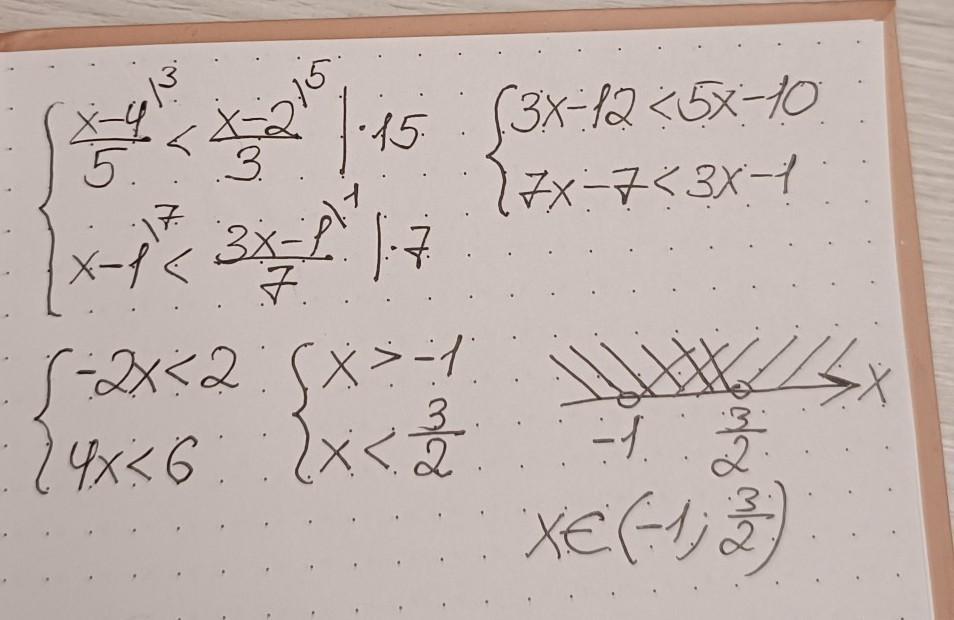 { (x-4)/5 \3 < (x-2)/3 \5 | ·15
x-1 \7 < (3x-1)/7 \1 | ·7
{ 3x-12 < 5x-10
7x-7 < 3x-1
{ -2x < 2
4x < 6
{ x > -1
x < 3/2
-1 3/2 x
x∈(-1; 3/2)